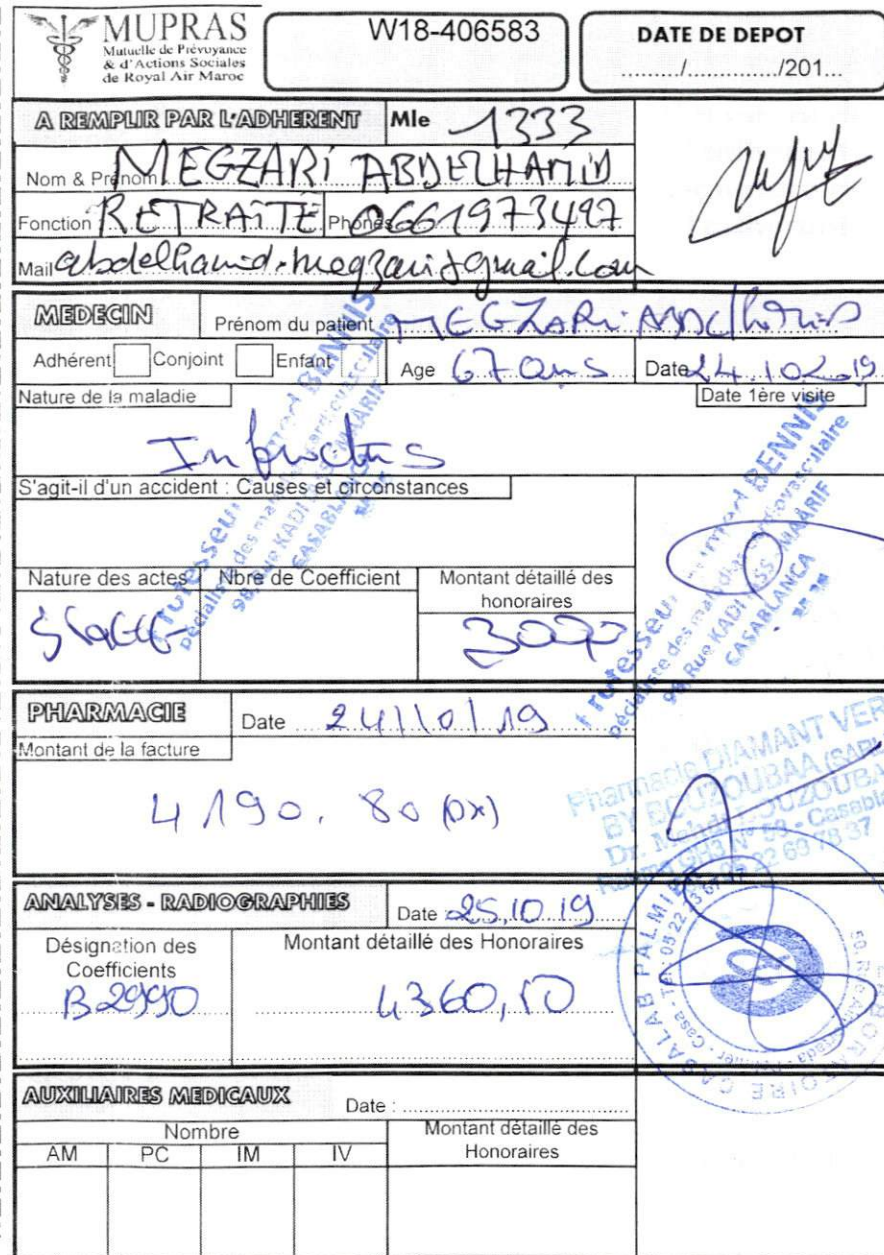 MUPRAS
Mutuelle de Prévoyance
& d'Actions Sociales
de Royal Air Maroc
W18-406583
DATE DE DEPOT
........./............../201...
A REMPLIR PAR L'ADHERENT Mle 1333
Nom & Prénom MEGZARI ABDELHAMID
Fonction RETRAITÉ Phones 0661973497
Mail
MEDECIN Prénom du patient MEGZARI Abdelhamid
Adhérent Conjoint Enfant Age 67 ans Date 24.10.2019
Nature de la maladie Date 1ère visite
Infarctus
S'agit-il d'un accident : Causes et circonstances
Nature des actes Nbre de Coefficient Montant détaillé des honoraires
3000
Professeur BENNIS
spécialiste des maladies cardiovasculaire
98, Rue KADI MAARIF
CASABLANCA
PHARMACIE Date 24/10/19
Montant de la facture
4190.80
Pharmacie DIAMANT VER
BY BOUZOUBAA (SARL
Dr. BOUZOUBA
GH3 N° 53 - Casabla
22 69 78 37
ANALYSES - RADIOGRAPHIES Date : 25.10.19
Désignation des Coefficients Montant détaillé des Honoraires
B2990 4360,50
LABORATOIRE CASALAB PALMIER
AUXILIAIRES MEDICAUX Date : ...................................
Nombre Montant détaillé des Honoraires
AM PC IM IV